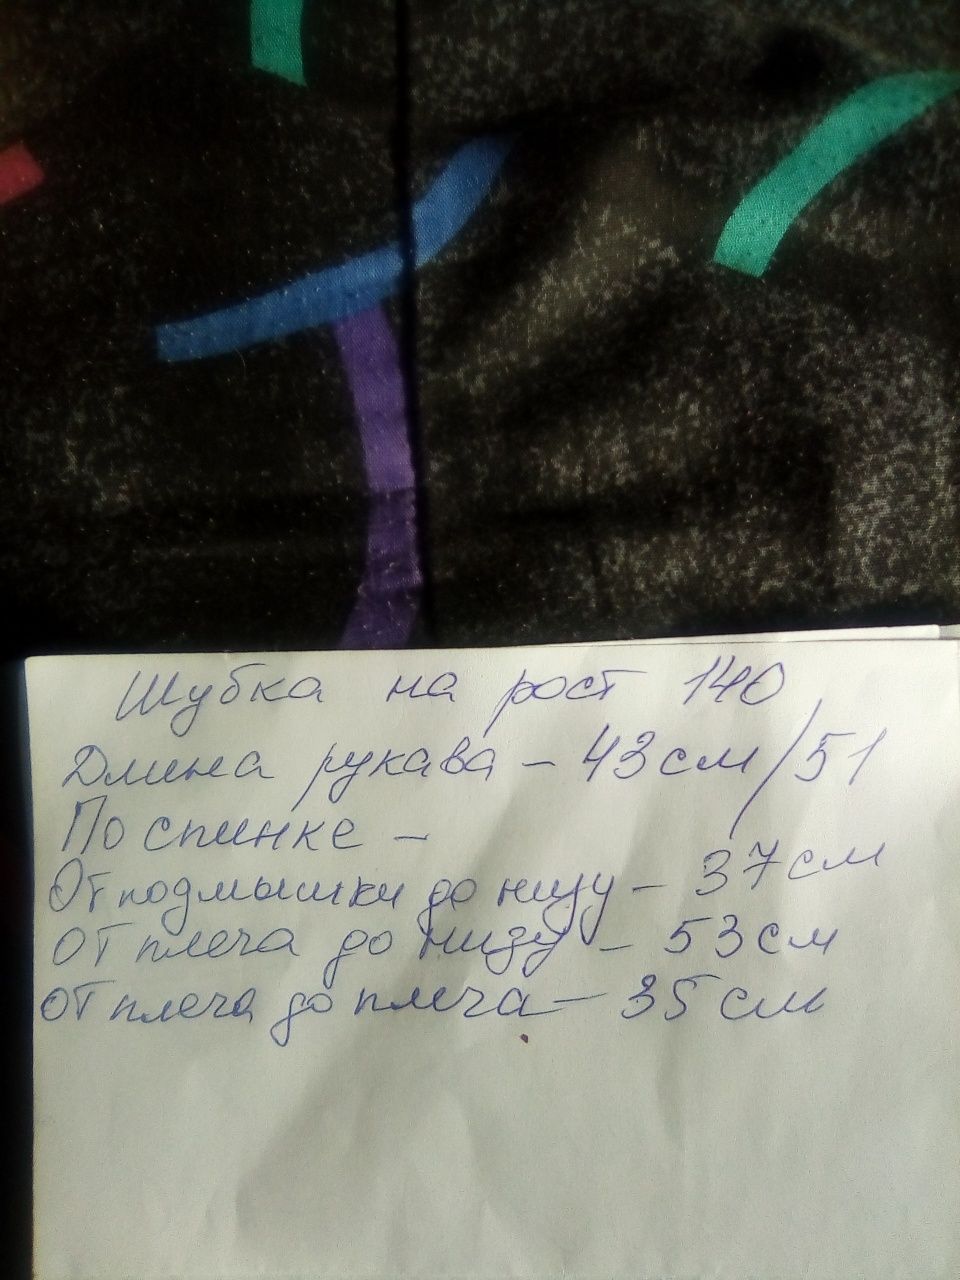 Шубка на рост 140
Длина рукава – 43см/51
По спинке –
От подмышки до низу – 37см
От плеча до низу – 53см
От плеча до плеча – 35см